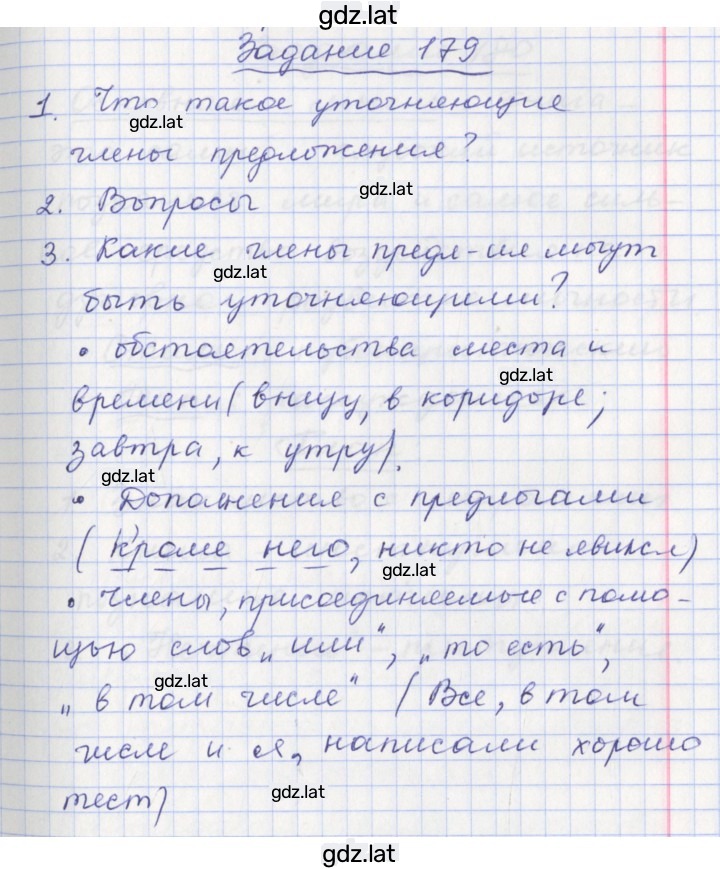 gdz.lat
Задание 179
1. Что такое уточняющие
gdz.lat
члены предложения?
gdz.lat
2. Вопросы
3. Какие члены предл-ия могут
gdz.lat
быть уточняющими?
• обстоятельства места и
gdz.lat
времени (внизу, в коридоре;
завтра, к утру).
gdz.lat
• Дополнения с предлогами
(Кроме него, никто не явился)
gdz.lat
• Члены, присоединяемые с помо-
щью слов „или“, „то есть“,
gdz.lat
„в том числе“ (Все, в том
числе и я, написали хорошо
gdz.lat
тест)
gdz.lat